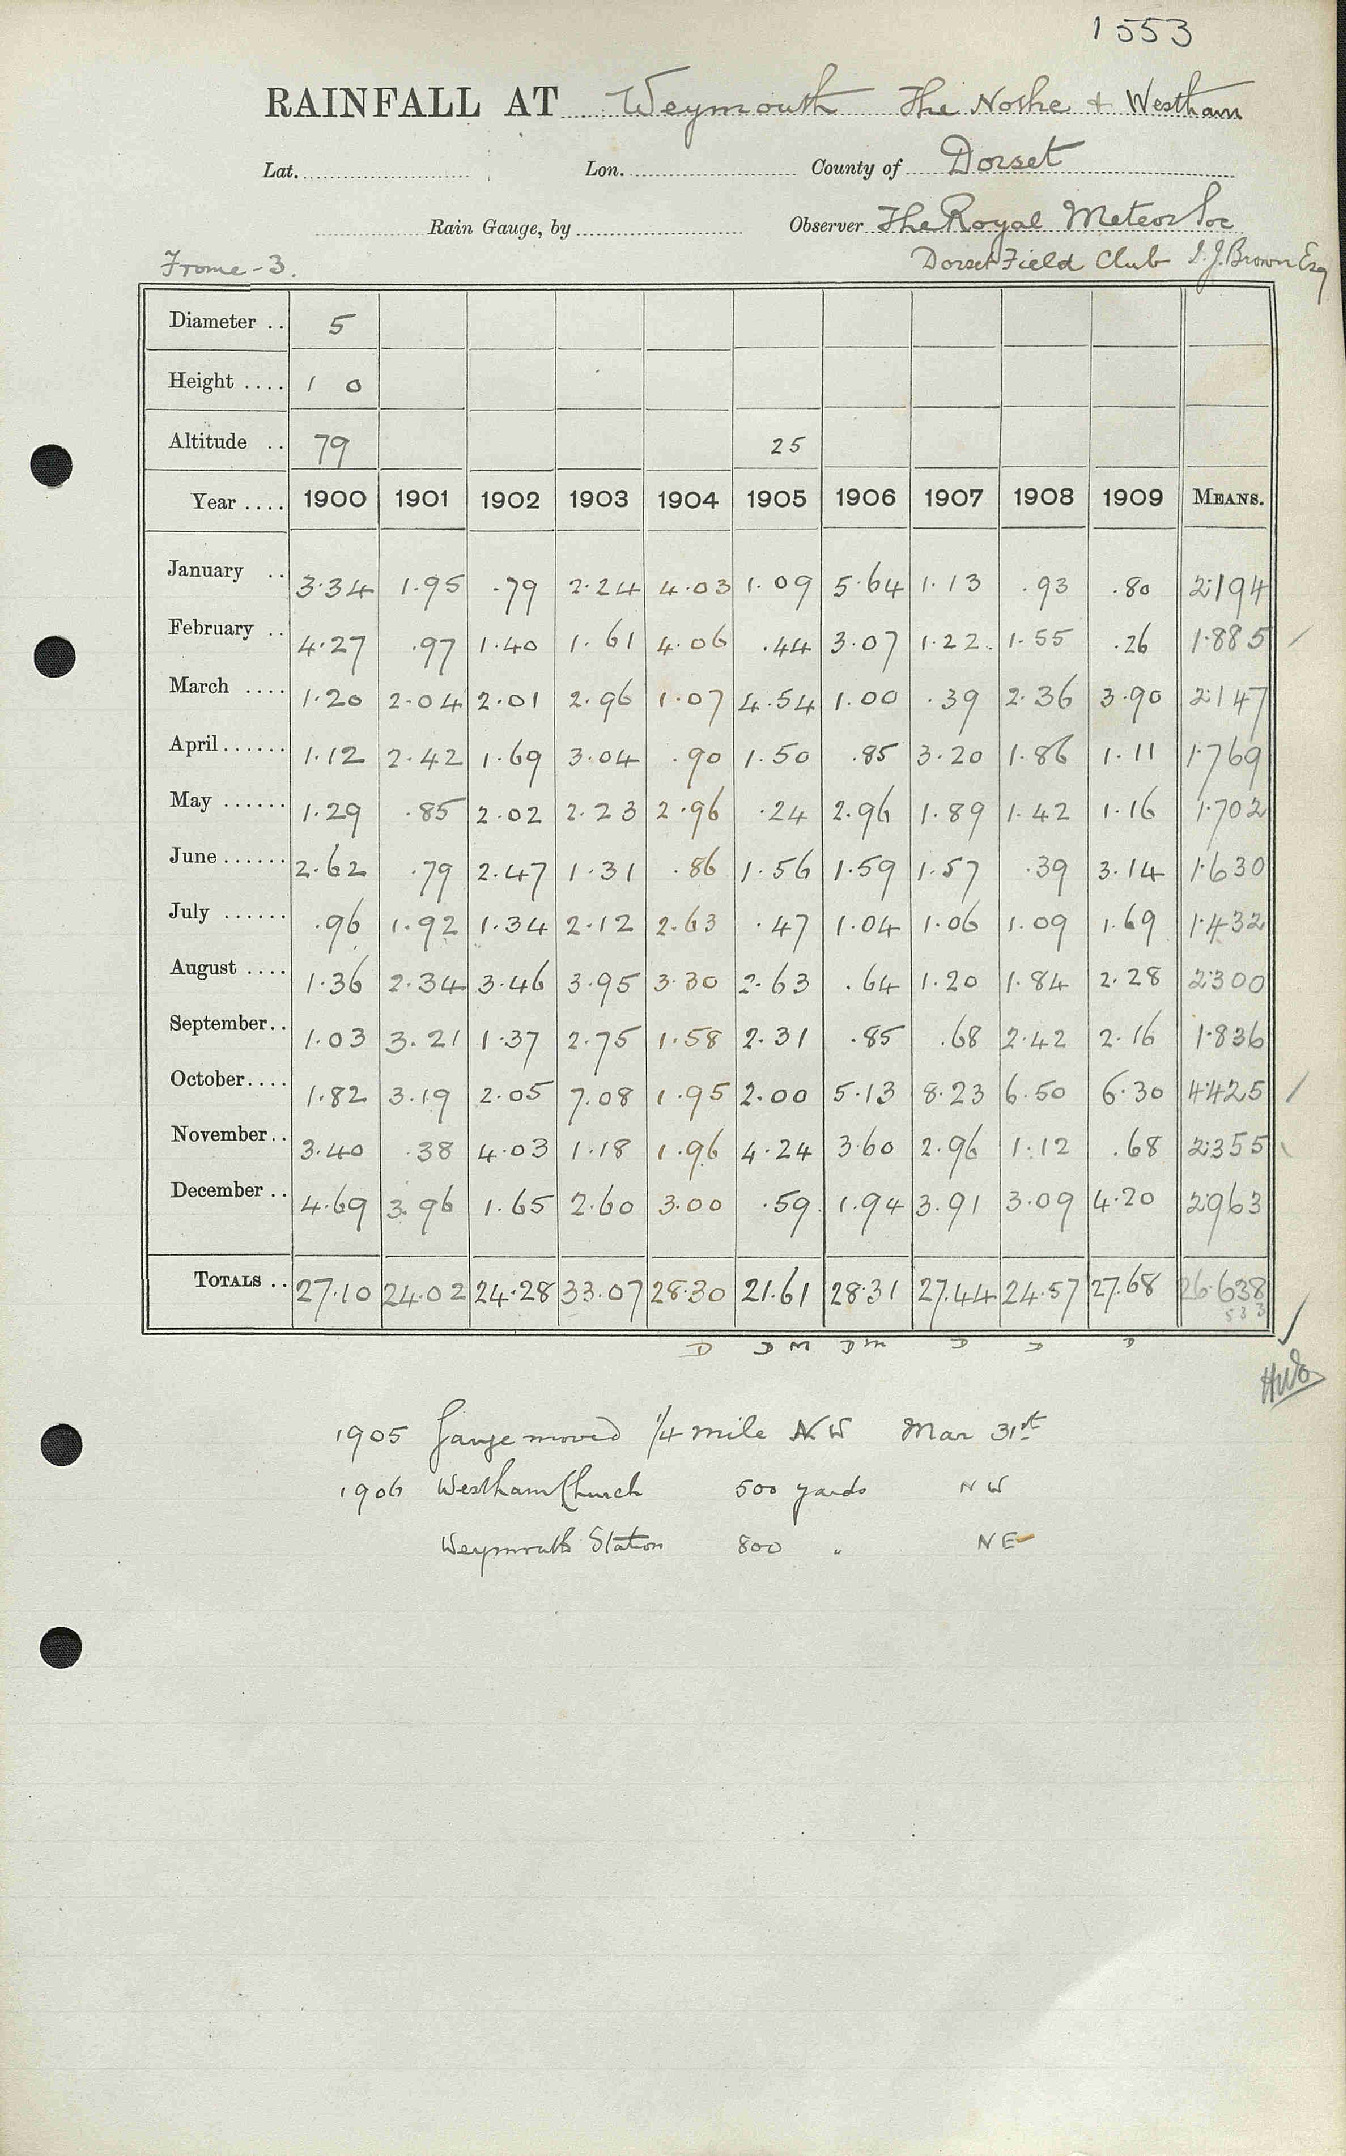 1553
RAINFALL AT Weymouth The Nothe & Westham
Lat. Lon. County of Dorset
Rain Gauge, by Observer The Royal Meteor Soc
Frome - 3. Dorset Field Club I. J. Brown Esq
Diameter .. 5
Height .... 1 0
Altitude .. 79 25
Year .... 1900 1901 1902 1903 1904 1905 1906 1907 1908 1909 MEANS.
January .. 3.34 1.95 .79 2.24 4.03 1.09 5.64 1.13 .93 .80 2.194
February .. 4.27 .97 1.40 1.61 4.06 .44 3.07 1.22 1.55 .26 1.885
March .... 1.20 2.04 2.01 2.96 1.07 4.54 1.00 .39 2.36 3.90 2.147
April ...... 1.12 2.42 1.69 3.04 .90 1.50 .85 3.20 1.86 1.11 1.769
May ...... 1.29 .85 2.02 2.23 2.96 .24 2.96 1.89 1.42 1.16 1.702
June ...... 2.62 .79 2.47 1.31 .86 1.56 1.59 1.57 .39 3.14 1.630
July ...... .96 1.92 1.34 2.12 2.63 .47 1.04 1.06 1.09 1.69 1.432
August .... 1.36 2.34 3.46 3.95 3.30 2.63 .64 1.20 1.84 2.28 2.300
September.. 1.03 3.21 1.37 2.75 1.58 2.31 .85 .68 2.42 2.16 1.836
October.... 1.82 3.19 2.05 7.08 1.95 2.00 5.13 8.23 6.50 6.30 4.425
November.. 3.40 .38 4.03 1.18 1.96 4.24 3.60 2.96 1.12 .68 2.355
December .. 4.69 3.96 1.65 2.60 3.00 .59 1.94 3.91 3.09 4.20 2.963
TOTALS .. 27.10 24.02 24.28 33.07 28.30 21.61 28.31 27.44 24.57 27.68 26.638
533
D D M D M D D D
1905 Gauge moved 1/4 mile NW Mar 31st
1906 Westham Church 500 yards NW
Weymouth Station 800 " NE